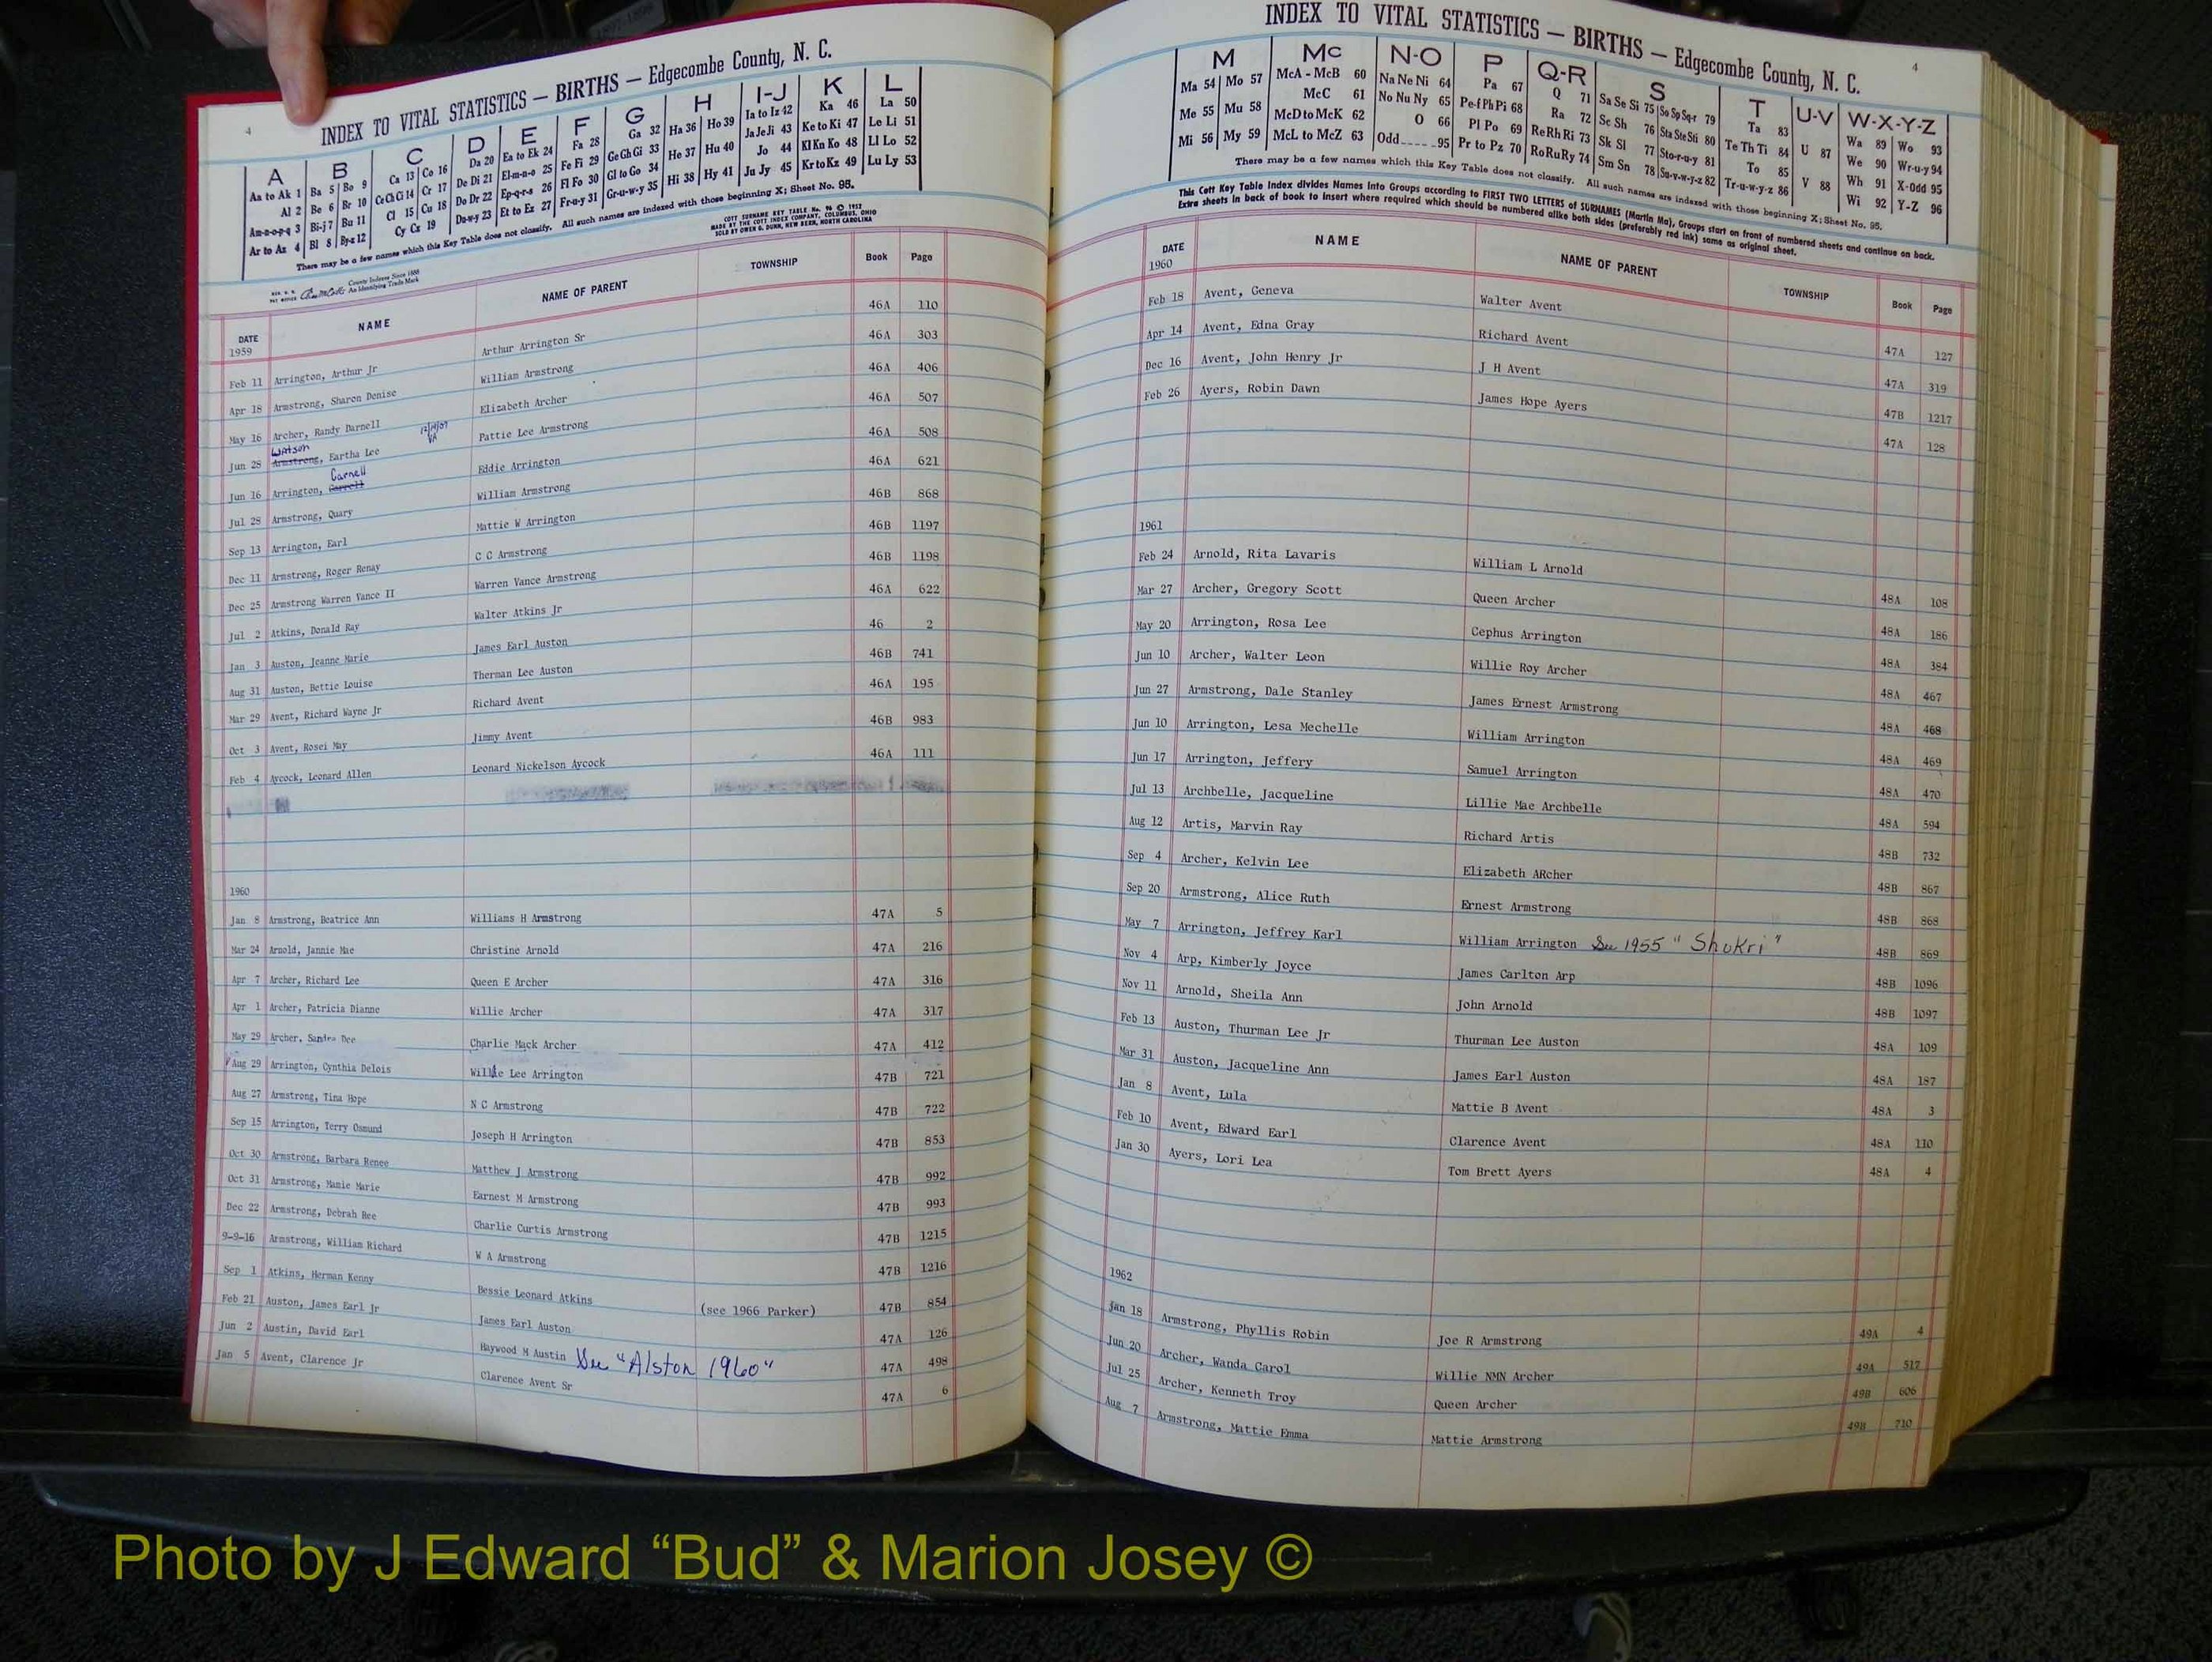 4
INDEX TO VITAL STATISTICS — BIRTHS — Edgecombe County, N. C.
A B C D E F G H I-J K L
Aa to Ak 1 Ba 5 Bo 9 Ca 13 Co 16 Da 20 Ea to Ek 24 Fa 28 Ga 32 Ha 36 Ho 39 Ia to Iz 42 Ka 46 La 50
Al 2 Be 6 Br 10 Ce Ch Ci 14 Cr 17 De Di 21 El-m-n-o 25 Fe Fi 29 Ge Gh Gi 33 He 37 Hu 40 Ja Je Ji 43 Ke to Ki 47 Le Li 51
Am-n-o-p-q 3 Bi-j 7 Bu 11 Cl 15 Cu 18 Do Dr 22 Ep-q-r-s 26 Fl Fo 30 Gl to Go 34 Hi 38 Hy 41 Jo 44 Kl Kn Ko 48 Ll Lo 52
Ar to Az 4 Bl 8 By-z 12 Cy Cz 19 Du-w-y 23 Et to Ez 27 Fr-u-y 31 Gr-u-w-y 35 Ju Jy 45 Kr to Kz 49 Lu Ly 53
There may be a few names which this Key Table does not classify. All such names are indexed with those beginning X; Sheet No. 95.
COTT SURNAME KEY TABLE No. 96 © 1957
MADE BY THE COTT INDEX COMPANY, COLUMBUS, OHIO
SOLD BY OWEN G. DUNN, NEW BERN, NORTH CAROLINA
County Indexes Since 1888
An Identifying Trade Mark
DATE NAME NAME OF PARENT TOWNSHIP Book Page
1959
Feb 11 Arrington, Arthur Jr Arthur Arrington Sr 46A 110
Apr 18 Armstrong, Sharon Denise William Armstrong 46A 303
May 16 Archer, Randy Darnell Elizabeth Archer 46A 406
Watson
Jun 28 Armstrong, Eartha Lee VA Pattie Lee Armstrong 46A 507
Carnell
Jun 16 Arrington, Eddie Arrington 46A 508
Jul 28 Armstrong, Quary William Armstrong 46A 621
Sep 13 Arrington, Earl Mattie W Arrington 46B 868
Dec 11 Armstrong, Roger Renay C C Armstrong 46B 1197
Dec 25 Armstrong Warren Vance II Warren Vance Armstrong 46B 1198
Jul 2 Atkins, Donald Ray Walter Atkins Jr 46A 622
Jan 3 Auston, Jeanne Marie James Earl Auston 46 2
Aug 31 Auston, Bettie Louise Therman Lee Auston 46B 741
Mar 29 Avent, Richard Wayne Jr Richard Avent 46A 195
Oct 3 Avent, Rosei May Jimmy Avent 46B 983
Feb 4 Aycock, Leonard Allen Leonard Nickelson Aycock 46A 111
1960
Jan 8 Armstrong, Beatrice Ann Williams H Armstrong 47A 5
Mar 24 Arnold, Jannie Mae Christine Arnold 47A 216
Apr 7 Archer, Richard Lee Queen E Archer 47A 316
Apr 1 Archer, Patricia Dianne Willie Archer 47A 317
May 29 Archer, Sandra Dee Charlie Mack Archer 47A 412
Aug 29 Arrington, Cynthia Delois Willie Lee Arrington 47B 721
Aug 27 Armstrong, Tina Hope N C Armstrong 47B 722
Sep 15 Arrington, Terry Osmund Joseph H Arrington 47B 853
Oct 30 Armstrong, Barbara Renee Matthew J Armstrong 47B 992
Oct 31 Armstrong, Mamie Marie Earnest M Armstrong 47B 993
Dec 22 Armstrong, Debrah Ree Charlie Curtis Armstrong 47B 1215
9-9-16 Armstrong, William Richard W A Armstrong 47B 1216
Sep 1 Atkins, Herman Kenny Bessie Leonard Atkins (see 1966 Parker) 47B 854
Feb 21 Auston, James Earl Jr James Earl Auston 47A 126
Jun 2 Austin, David Earl Haywood M Austin See "Alston 1960" 47A 498
Jan 5 Avent, Clarence Jr Clarence Avent Sr 47A 6
4
INDEX TO VITAL STATISTICS — BIRTHS — Edgecombe County, N. C.
M Mc N-O P Q-R S T U-V W-X-Y-Z
Ma 54 Mo 57 McA - McB 60 Na Ne Ni 64 Pa 67 Q 71 Sa Se Si 75 So Sp Sq-r 79 Ta 83 U 87 Wa 89 Wo 93
Me 55 Mu 58 McC 61 No Nu Ny 65 Pe-f Ph Pi 68 Ra 72 Sc Sh 76 Sta Ste Sti 80 Te Th Ti 84 V 88 We 90 Wr-u-y 94
Mi 56 My 59 McD to McK 62 O 66 Pl Po 69 Re Rh Ri 73 Sk Sl 77 Sto-r-u-y 81 To 85 Wh 91 X-Odd 95
McL to McZ 63 Odd 95 Pr to Pz 70 Ro Ru Ry 74 Sm Sn 78 Su-v-w-y-z 82 Tr-u-w-y-z 86 Wi 92 Y-Z 96
There may be a few names which this Key Table does not classify. All such names are indexed with those beginning X; Sheet No. 95.
This Cott Key Table Index divides Names into Groups according to FIRST TWO LETTERS of SURNAMES (Martin Ma), Groups start on front of numbered sheets and continue on back.
Extra sheets in back of book to insert where required which should be numbered alike both sides (preferably red ink) same as original sheet.
DATE NAME NAME OF PARENT TOWNSHIP Book Page
1960
Feb 18 Avent, Geneva Walter Avent 47A 127
Apr 14 Avent, Edna Gray Richard Avent 47A 319
Dec 16 Avent, John Henry Jr J H Avent 47B 1217
Feb 26 Ayers, Robin Dawn James Hope Ayers 47A 128
1961
Feb 24 Arnold, Rita Lavaris William L Arnold 48A 108
Mar 27 Archer, Gregory Scott Queen Archer 48A 186
May 20 Arrington, Rosa Lee Cephus Arrington 48A 384
Jun 10 Archer, Walter Leon Willie Roy Archer 48A 467
Jun 27 Armstrong, Dale Stanley James Ernest Armstrong 48A 468
Jun 10 Arrington, Lesa Mechelle William Arrington 48A 469
Jun 17 Arrington, Jeffery Samuel Arrington 48A 470
Jul 13 Archbelle, Jacqueline Lillie Mae Archbelle 48A 594
Aug 12 Artis, Marvin Ray Richard Artis 48B 732
Sep 4 Archer, Kelvin Lee Elizabeth ARcher 48B 867
Sep 20 Armstrong, Alice Ruth Ernest Armstrong 48B 868
May 7 Arrington, Jeffrey Karl William Arrington See 1955 "Shukri" 48B 869
Nov 4 Arp, Kimberly Joyce James Carlton Arp 48B 1096
Nov 11 Arnold, Sheila Ann John Arnold 48B 1097
Feb 13 Auston, Thurman Lee Jr Thurman Lee Auston 48A 109
Mar 31 Auston, Jacqueline Ann James Earl Auston 48A 187
Jan 8 Avent, Lula Mattie B Avent 48A 3
Feb 10 Avent, Edward Earl Clarence Avent 48A 110
Jan 30 Ayers, Lori Lea Tom Brett Ayers 48A 4
1962
Jan 18 Armstrong, Phyllis Robin Joe R Armstrong 49A 4
Jun 20 Archer, Wanda Carol Willie NMN Archer 49A 512
Jul 25 Archer, Kenneth Troy Queen Archer 49B 606
Aug 7 Armstrong, Mattie Emma Mattie Armstrong 49B 710
Photo by J Edward “Bud” & Marion Josey ©